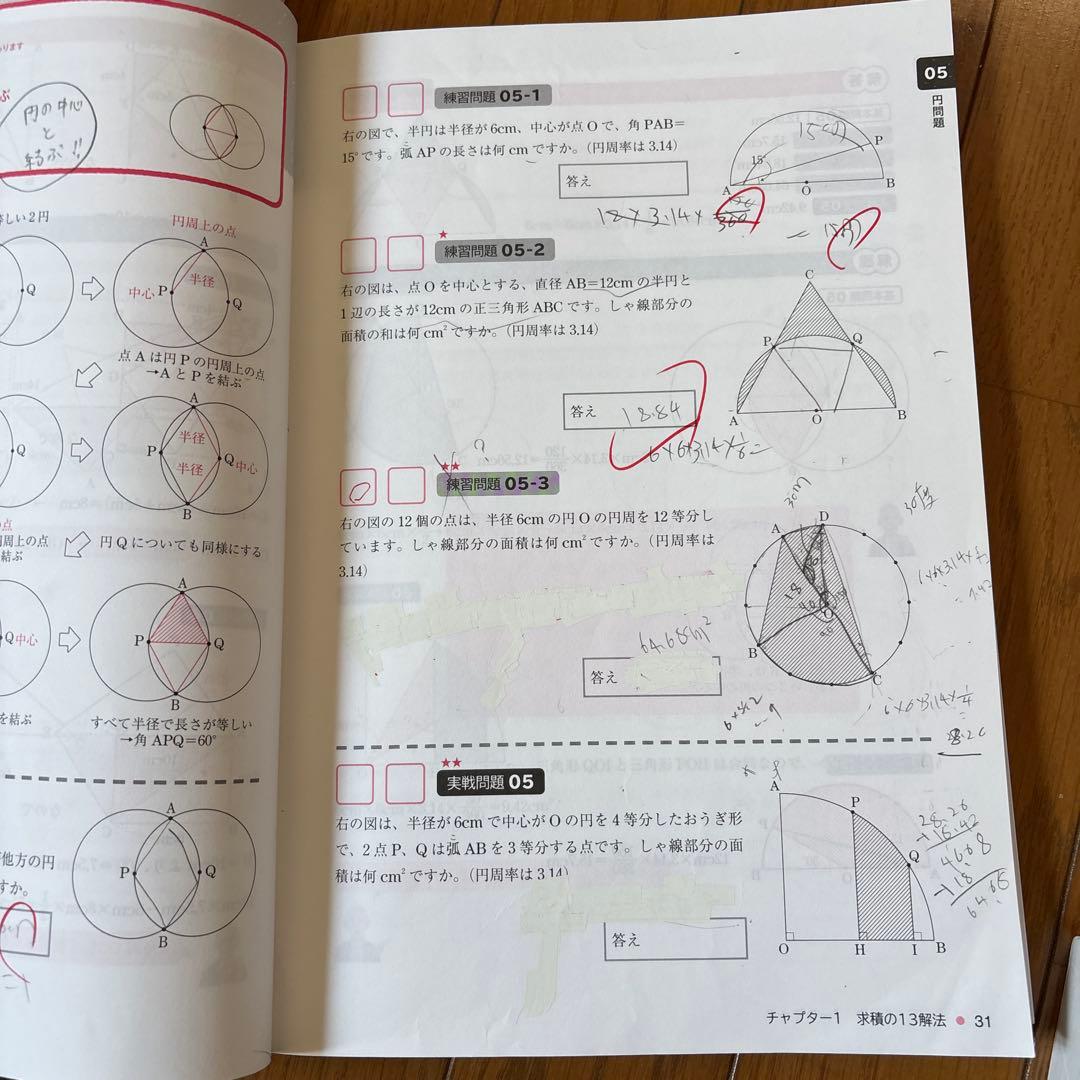 ります
ぶ
円の中心
と
結ぶ!!
等しい2円
円周上の点
A
半径
中心 P
Q
Q
点Aは円Pの円周上の点
→AとPを結ぶ
A
半径
半径
P
Q 中心
B
の点
周上の点
結ぶ
円Qについても同様にする
A
P
Q
Q 中心
B
を結ぶ
すべて半径で長さが等しい
→角APQ=60°
A
P
Q
B
他方の円
すか。
05
円問題
練習問題 05-1
右の図で、半円は半径が6cm、中心が点Oで、角PAB=
15°です。弧APの長さは何cmですか。(円周率は3.14)
こ
答え
15°
P
A
O
B
12×3.14×
360
★
練習問題 05-2
右の図は、点Oを中心とする、直径AB=12cmの半円と
1辺の長さが12cmの正三角形ABCです。しゃ線部分の
面積の和は何cm²ですか。(円周率は3.14)
答え 18.84
6×6×3.14×1/6=
C
P
Q
A
O
B
★★
練習問題 05-3
右の図の12個の点は、半径6cmの円Oの円周を12等分し
ています。しゃ線部分の面積は何cm²ですか。(円周率は
3.14)
64.68cm²
答え
A
D
O
B
C
30度
6×6×3.14×1/4
28.26
★★
実戦問題 05
右の図は、半径が6cmで中心がOの円を4等分したおうぎ形
こ
で、2点P、Qは弧ABを3等分する点です。しゃ線部分の面
積は何cm²ですか。(円周率は3.14)
答え
A
P
Q
O
H
I
B
28.26
46.68
18
64.68
チャプター1 求積の13解法 ● 31